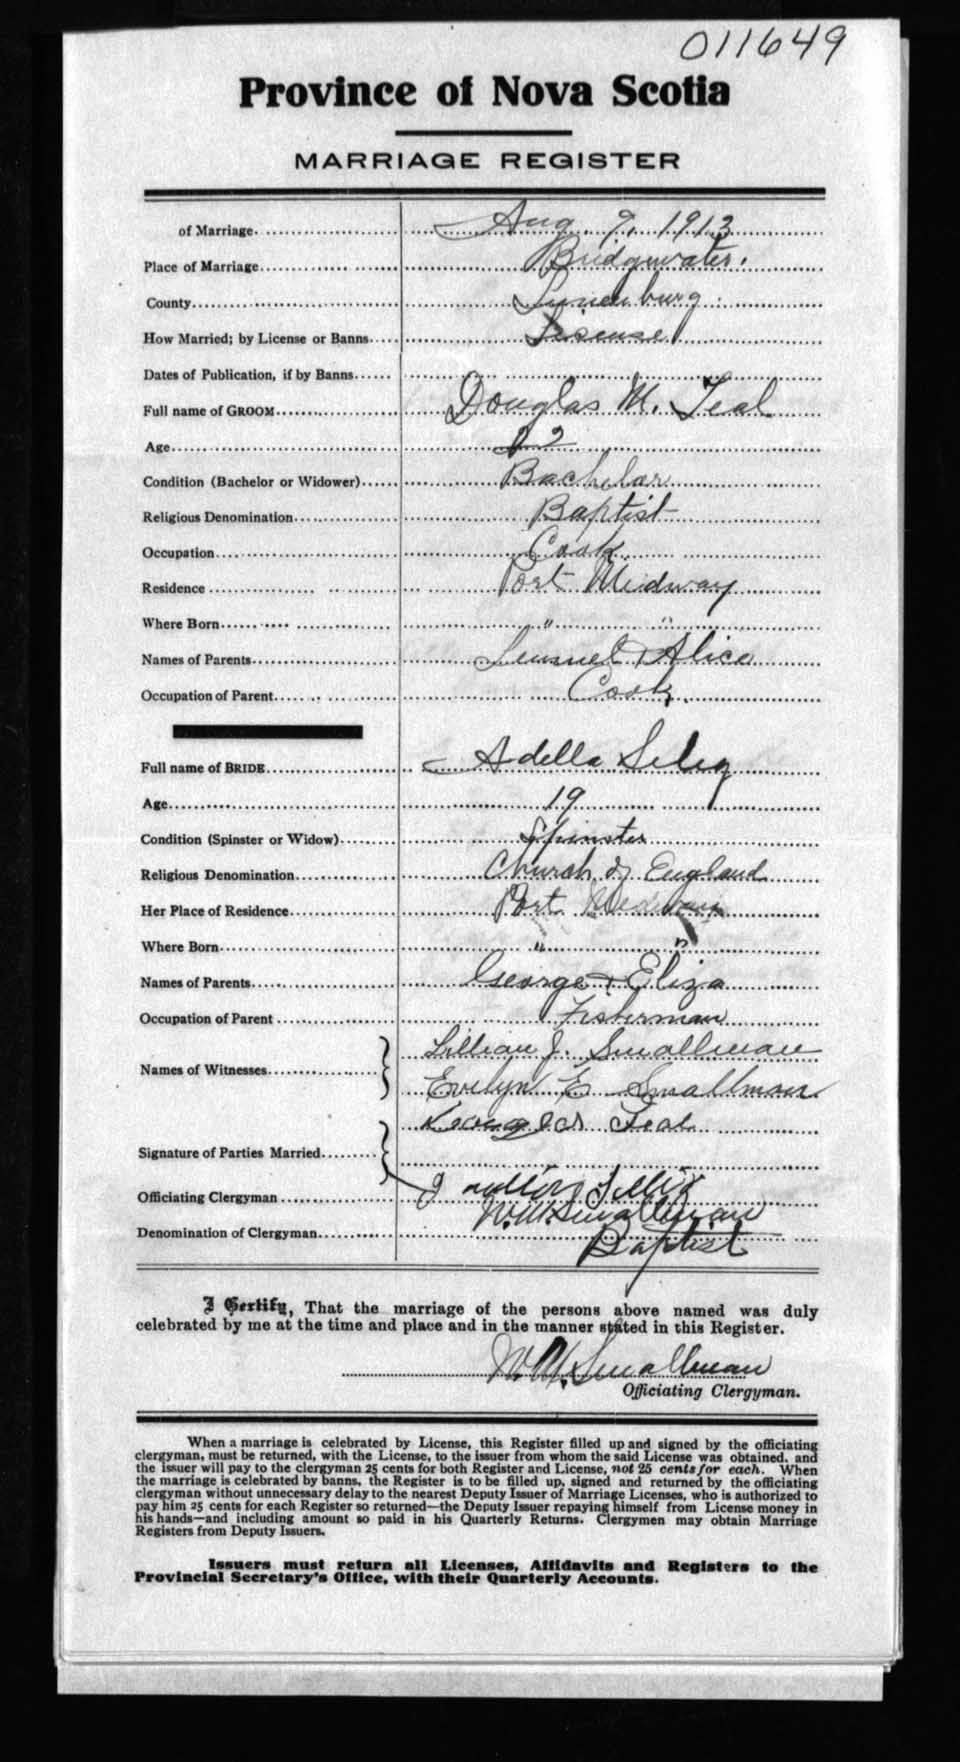 011649
Province of Nova Scotia
MARRIAGE REGISTER
of Marriage Aug. 9, 1913
Place of Marriage Bridgewater.
County Lunenburg.
How Married; by License or Banns License
Dates of Publication, if by Banns
Full name of GROOM Douglas M. Teal
Age 22
Condition (Bachelor or Widower) Bachelor
Religious Denomination Baptist
Occupation Cook.
Residence Port Midway
Where Born " "
Names of Parents Lemuel & Alice
Occupation of Parent Cook.
Full name of BRIDE Adella Selig
Age 19
Condition (Spinster or Widow) Spinster
Religious Denomination Church of England
Her Place of Residence Port Medway
Where Born " "
Names of Parents George & Eliza
Occupation of Parent Fisherman
Names of Witnesses Lillian J. Smallman
Evelyn E Smallman
Teal
Signature of Parties Married
Officiating Clergyman W.M. Smallman
Denomination of Clergyman Baptist
I Certify, That the marriage of the persons above named was duly
celebrated by me at the time and place and in the manner stated in this Register.
W.M. Smallman
Officiating Clergyman.
When a marriage is celebrated by License, this Register filled up and signed by the officiating
clergyman, must be returned, with the License, to the issuer from whom the said License was obtained. and
the issuer will pay to the clergyman 25 cents for both Register and License, not 25 cents for each. When
the marriage is celebrated by banns, the Register is to be filled up, signed and returned by the officiating
clergyman without unnecessary delay to the nearest Deputy Issuer of Marriage Licenses, who is authorized to
pay him 25 cents for each Register so returned—the Deputy Issuer repaying himself from License money in
his hands—and including amount so paid in his Quarterly Returns. Clergymen may obtain Marriage
Registers from Deputy Issuers.
Issuers must return all Licenses, Affidavits and Registers to the
Provincial Secretary's Office, with their Quarterly Accounts.